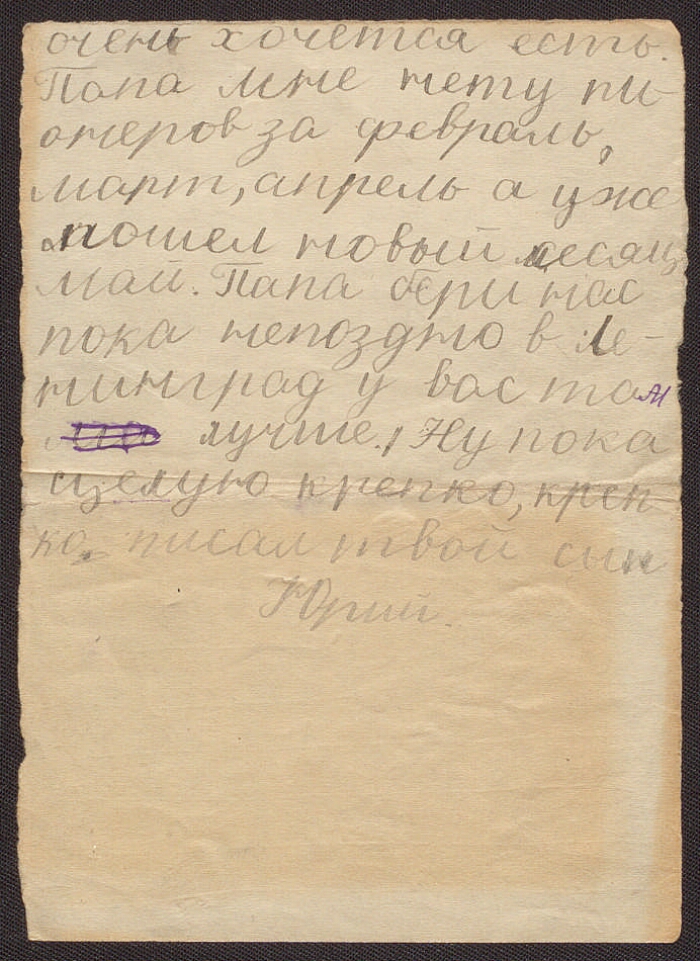 очень хочется есть.
Папа мне нету пи-
онеров за февраль,
март, апрель а уже
пошел новый месяц
май. Папа бери нас
пока непоздно в Ле-
нинград у вас там
лучше! Ну пока
цželую крепко, креп
ко. писал твой сын
Юрий.